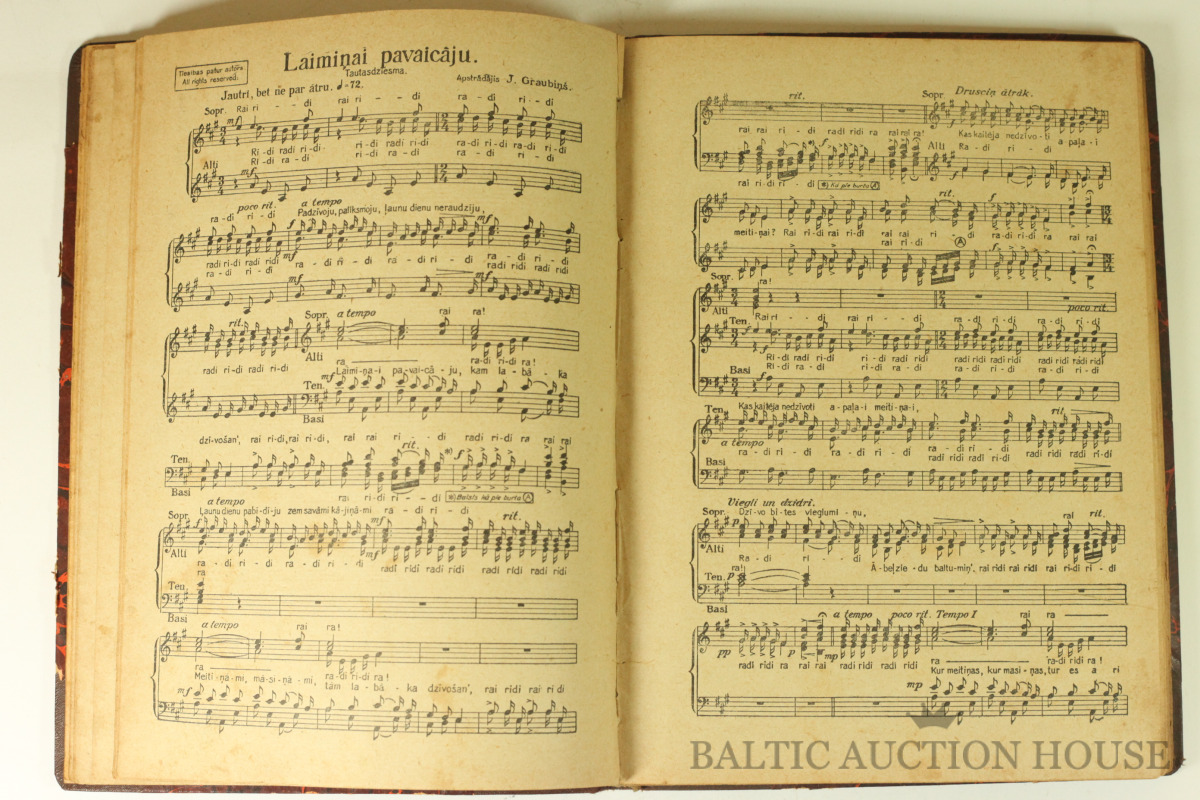 Laimiņai pavaicāju.
Tiesības patur autors
All rights reserved.
Tautasdziesma.
Apstrādājis J. Graubiņš.
Jautri, bet ne par ātru. ♩=72.
Sopr. Rai ri - - di rai ri - - di ra - di ri - di
mf
Ri-di radi ri-di ri-di radi ri-di ra-di ri-di
Alti Ri-di ra-di ri-di ra-di ra-di ri-di
mf
poco rit. a tempo
ra-di ri-di Padzīvoju, palīksmoju, ļaunu dienu neraudzīju,
f mf
radi ri-di radi ridi ra-di ri-di ra-di ri-di radi ridi radi ridi
ra-di ri-di
mf mf
rit. Sopr. a tempo rai ra!
Alti
radi ri-di radi ri-di ra ra-di ri-di ra!
mf Laimi-ņa-i pa-vai-cā-ju, kam la-bā-ka
Ten.
Basi
dzī-vošan', rai ri-di, rai ri-di, rai rai ri - di radi ri-di ra rai rai
rit.
Ten. f
Basi
rai ri-di ri-di *) Balsis kā pie burta A
a tempo
Sopr. Ļaunu dienu pabi-dī-ju zem savāmi kā-jiņā-mi ra-di ri-di rit.
f mf
Alti
ra-di ri-di ra-di ri-di radi ridi radi ridi radi ridi radi ridi
mf
ra
Ten.
Basi
a tempo rai ra!
ra ra-di ri-di ra!
Meiti-ņa-mi, ma-si-ņa-mi, tām la-bā-ka dzīvošan', rai rīdi rai ri di
mf
rit. Sopr. Drusciņ ātrāk.
f
rai rai ri-di radi ridi ra rai rai ra! Kas kaitēja nedzīvo-ti a paļa-i
f Alti
Ra-di ri-di
rai ri di ri-di *) Kā pie burta A
rit. f
meiti-ņai? Rai ri-di rai ri-di rai rai ri - di ra-di ri-di ra rai rai
rai ri-di A f
Sopr. ra!
Alti poco rit.
Ten. Rai ri - di rai ri - di ra-di ri-di ra-di ri-di
f
Ri-di radi ri-di ri-di radi ridi radi ridi radi ridi radi ridi radi ridi
Basi Ri-di ra-di ri-di ra-di ra-di ri-di ra-di ri-di
f
Ten. Kas kaitēja nedzīvoti a-paļa-i meiti-ņa-i, rit.
a tempo ra-di ri-di ra-di ri-di radi ridi radi ridi radi ridi radi ridi
Basi
Viegli un dzidri.
Sopr. Dzī-vo bi-tes vieglumi-ņu, rai rit.
p
Alti
Ra-di ri-di Ā-beļzie-du baltumiņ', rai rīdi rai rīdi rai ri-di ri-di
ra!
Ten. p
Basi
a tempo poco rit. Tempo I rai ra
pp p mp
radi ridi ra rai rai radi ridi radi ridi ra ra-di ridi ra!
Kur meitiņas, kur masi-ņas, tur es a ri
mp
BALTIC AUCTION HOUSE